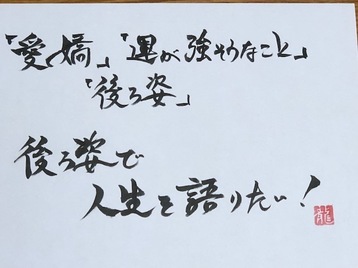 「愛嬌」「運が強そうなこと」
「後ろ姿」
後ろ姿で
人生を語りたい!